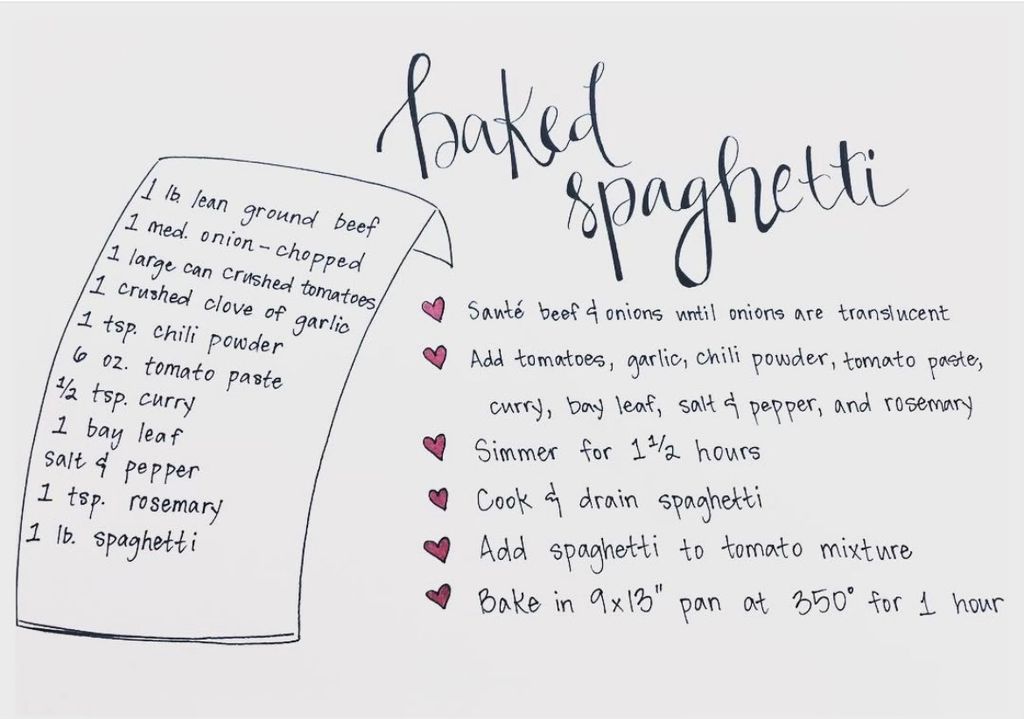 baked
spaghetti
1 lb. lean ground beef
1 med. onion - chopped
1 large can crushed tomatoes
1 crushed clove of garlic
1 tsp. chili powder
6 oz. tomato paste
1/2 tsp. curry
1 bay leaf
salt & pepper
1 tsp. rosemary
1 lb. spaghetti
Santé beef & onions until onions are translucent
Add tomatoes, garlic, chili powder, tomato paste,
curry, bay leaf, salt & pepper, and rosemary
Simmer for 1 1/2 hours
Cook & drain spaghetti
Add spaghetti to tomato mixture
Bake in 9x13" pan at 350° for 1 hour